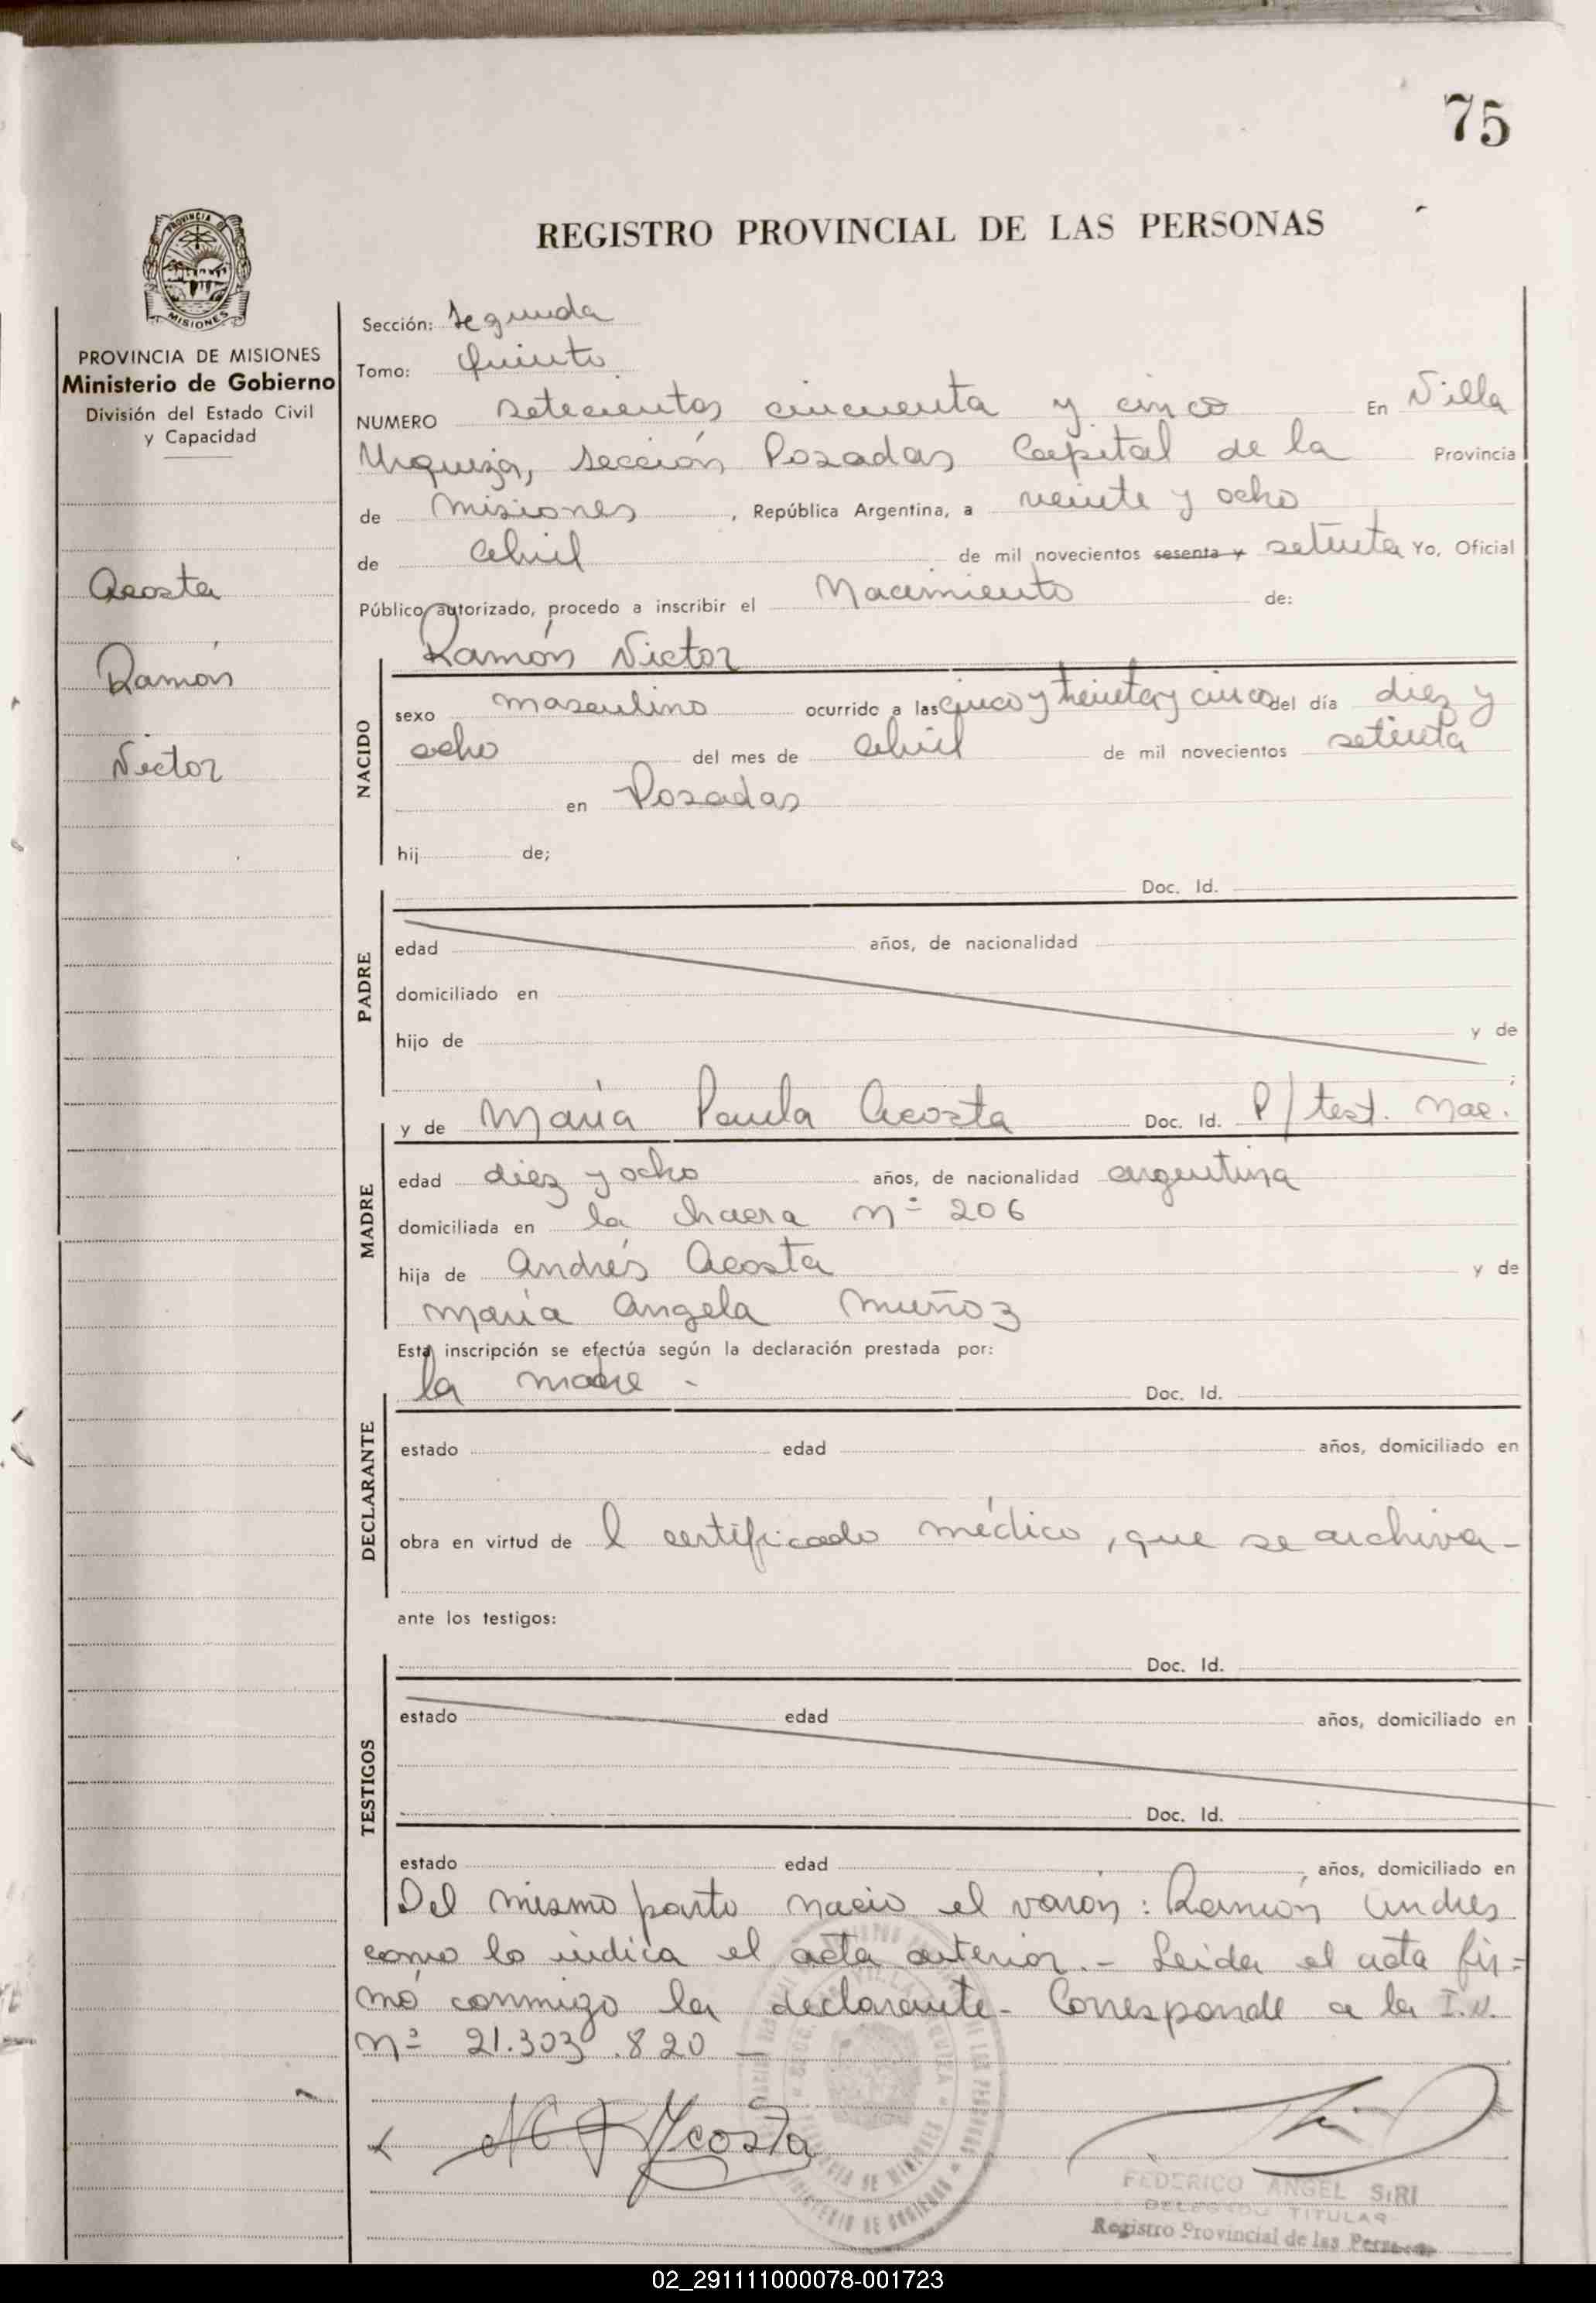 75
REGISTRO PROVINCIAL DE LAS PERSONAS
PROVINCIA DE MISIONES
Ministerio de Gobierno
División del Estado Civil
y Capacidad
Acosta
Ramón
Victor
Sección: Segunda
Tomo: Quinto
NUMERO setecientos cincuenta y cinco En Villa
Urquiza, Sección Posadas Capital de la Provincia
de Misiones, República Argentina, a veinte y ocho
de abril de mil novecientos sesenta y setenta Yo, Oficial
Público autorizado, procedo a inscribir el Nacimiento de:
Ramón Victor
NACIDO
sexo masculino ocurrido a las cinco y treinta y cinco del día diez y
ocho del mes de abril de mil novecientos setenta
en Posadas
hij de;
Doc. Id.
PADRE
edad años, de nacionalidad
domiciliado en
hijo de y de
;
y de María Paula Acosta Doc. Id. P/ test. nac.
MADRE
edad diez y ocho años, de nacionalidad argentina
domiciliada en la chacra nº 206
hija de Andrés Acosta y de
María Angela Muñoz
Esta inscripción se efectúa según la declaración prestada por:
la madre - Doc. Id.
DECLARANTE
estado edad años, domiciliado en
obra en virtud de l certificado médico, que se archiva-
ante los testigos:
Doc. Id.
TESTIGOS
estado edad años, domiciliado en
Doc. Id.
estado edad años, domiciliado en
Del mismo parto nacio el varón: Ramón Andres
como lo indica el acta anterior.- Leida el acta fir=
mó conmigo la declarante- Corresponde a la I.N.
nº 21.303.820 —
Acosta
FEDERICO ANGEL SIRI
DELEGADO TITULAR
Registro Provincial de las Personas
02_291111000078-001723